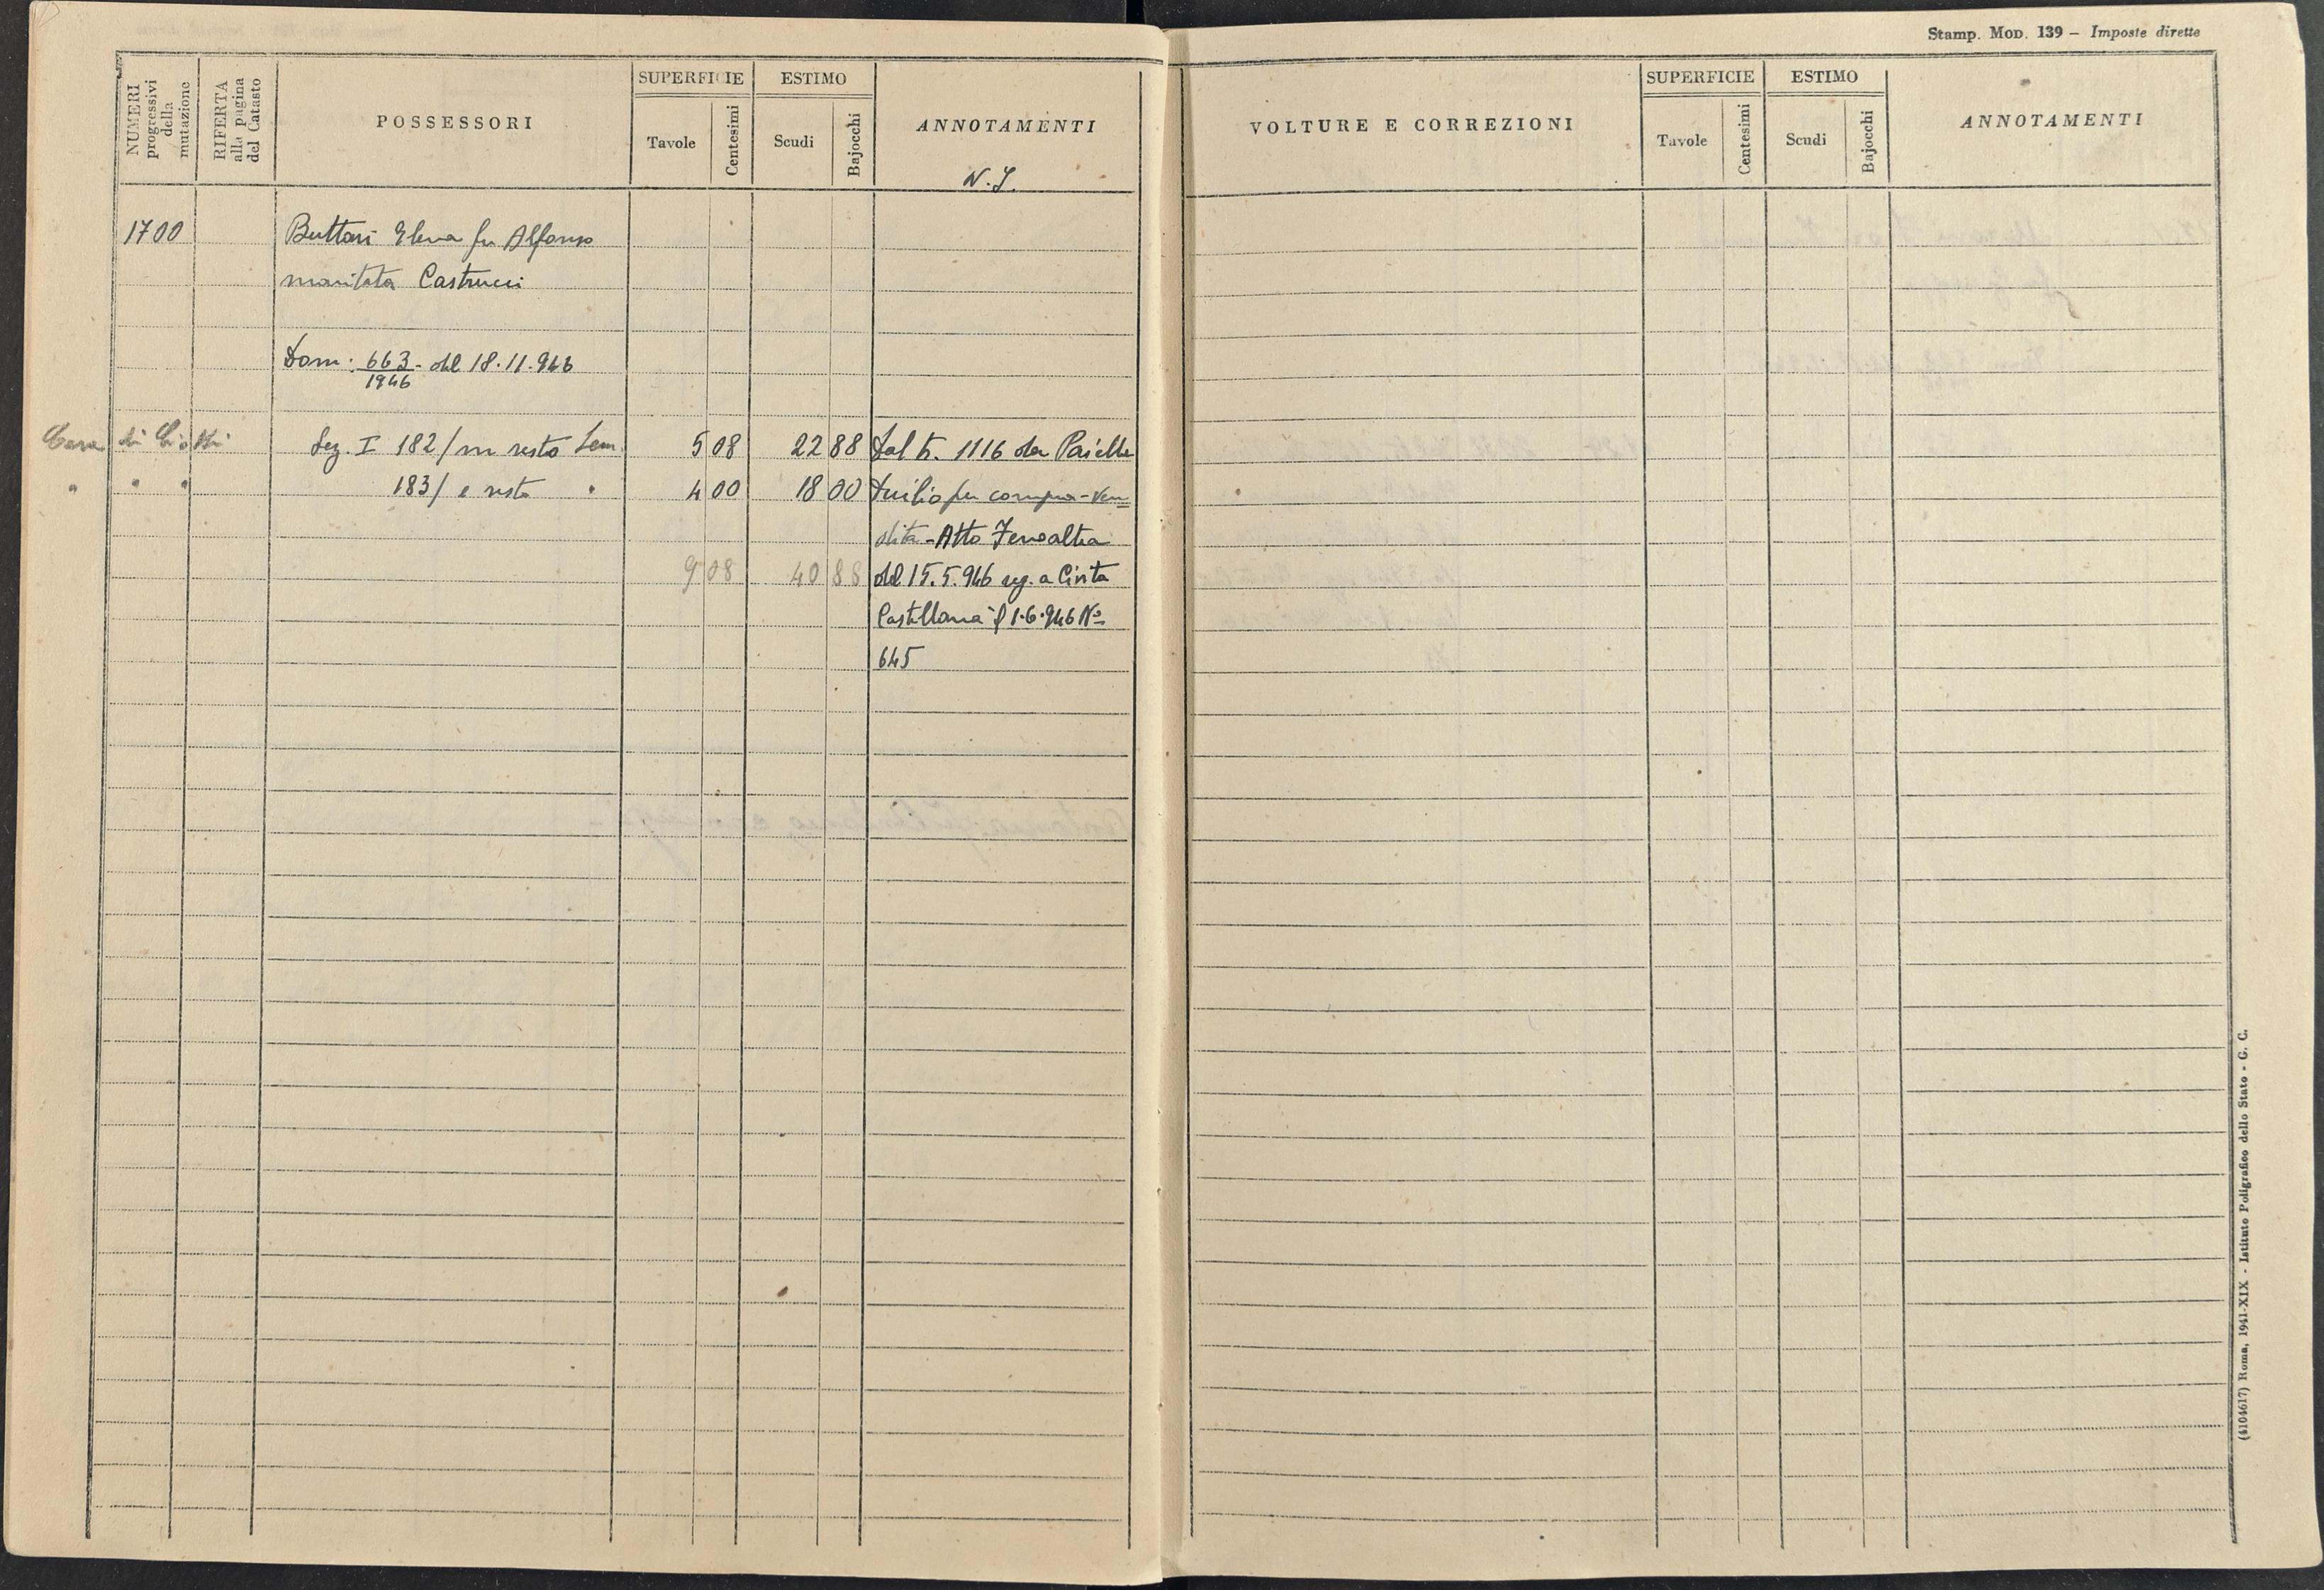 Stamp. Mod. 139 – Imposte dirette
NUMERI progressivi della mutazione
RIFERTA alla pagina del Catasto
POSSESSORI
SUPERFICIE
Tavole
Centesimi
ESTIMO
Scudi
Bajocchi
ANNOTAMENTI
VOLTURE E CORREZIONI
SUPERFICIE
Tavole
Centesimi
ESTIMO
Scudi
Bajocchi
ANNOTAMENTI
1700
Buttari Elena fu Alfonso
maritata Castrucci
Dom: 663/1946 - del 18.11.946
di
Sez. I 182/m resto Sem. 5 08 22 88 Dal k. 1116 da Paielli
" " " 183/e resto " 4 00 18 00 Duilio per compra-ven=
dita - Atto Fenoaltea
9 08 40 88 del 15.5.946 reg. a Civita
Castellana il 1.6.946 No
645
(4104617) Roma, 1941-XIX - Istituto Poligrafico dello Stato - G. C.